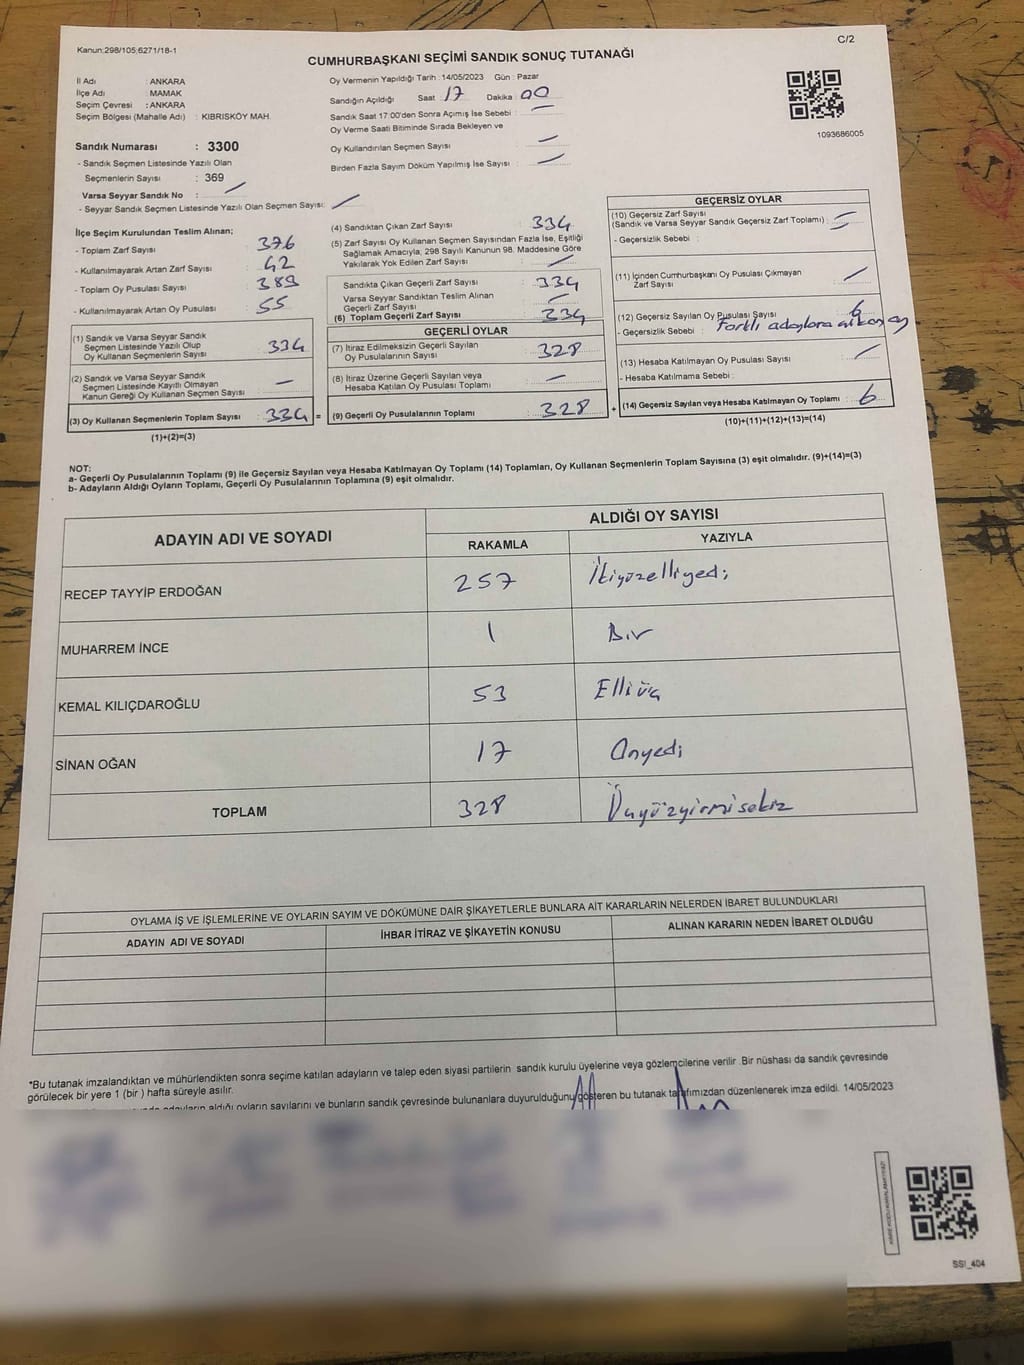 Kanun:298/105;6271/18-1
C/2
CUMHURBAŞKANI SEÇİMİ SANDIK SONUÇ TUTANAĞI
İl Adı : ANKARA
İlçe Adı : MAMAK
Seçim Çevresi : ANKARA
Seçim Bölgesi (Mahalle Adı) : KIBRISKÖY MAH.
Oy Vermenin Yapıldığı Tarih :14/05/2023 Gün : Pazar
Sandığın Açıldığı Saat : 17 Dakika : 00
Sandık Saat 17:00'den Sonra Açımış İse Sebebi : —
Oy Verme Saati Bitiminde Sırada Bekleyen ve
Oy Kullandırılan Seçmen Sayısı : —
Birden Fazla Sayım Döküm Yapılmış İse Sayısı : —
1093686005
Sandık Numarası : 3300
- Sandık Seçmen Listesinde Yazılı Olan
Seçmenlerin Sayısı : 369
Varsa Seyyar Sandık No : —
- Seyyar Sandık Seçmen Listesinde Yazılı Olan Seçmen Sayısı: —
İlçe Seçim Kurulundan Teslim Alınan;
- Toplam Zarf Sayısı : 376
- Kullanılmayarak Artan Zarf Sayısı : 42
- Toplam Oy Pusulası Sayısı : 389
- Kullanılmayarak Artan Oy Pusulası : 55
(1) Sandık ve Varsa Seyyar Sandık
Seçmen Listesinde Yazılı Olup
Oy Kullanan Seçmenlerin Sayısı : 334
(2) Sandık ve Varsa Seyyar Sandık
Seçmen Listesinde Kayıtlı Olmayan
Kanun Gereği Oy Kullanan Seçmen Sayısı : —
(3) Oy Kullanan Seçmenlerin Toplam Sayısı : 334 =
(1)+(2)=(3)
(4) Sandıktan Çıkan Zarf Sayısı : 334
(5) Zarf Sayısı Oy Kullanan Seçmen Sayısından Fazla İse, Eşitliği
Sağlamak Amacıyla, 298 Sayılı Kanunun 98. Maddesine Göre
Yakılarak Yok Edilen Zarf Sayısı : —
Sandıkta Çıkan Geçerli Zarf Sayısı : 334
Varsa Seyyar Sandıktan Teslim Alınan
Geçerli Zarf Sayısı : —
(6) Toplam Geçerli Zarf Sayısı : 334
GEÇERLİ OYLAR
(7) İtiraz Edilmeksizin Geçerli Sayılan
Oy Pusulalarının Sayısı : 328
(8) İtiraz Üzerine Geçerli Sayılan veya
Hesaba Katılan Oy Pusulası Toplamı : —
(9) Geçerli Oy Pusulalarının Toplamı : 328 +
GEÇERSİZ OYLAR
(10) Geçersiz Zarf Sayısı
(Sandık ve Varsa Seyyar Sandık Geçersiz Zarf Toplamı) : —
- Geçersizlik Sebebi : —
(11) İçinden Cumhurbaşkanı Oy Pusulası Çıkmayan
Zarf Sayısı : —
(12) Geçersiz Sayılan Oy Pusulası Sayısı : 6
- Geçersizlik Sebebi : Farklı adaylara
(13) Hesaba Katılmayan Oy Pusulası Sayısı : —
- Hesaba Katılmama Sebebi :
(14) Geçersiz Sayılan veya Hesaba Katılmayan Oy Toplamı : 6
(10)+(11)+(12)+(13)=(14)
NOT:
a- Geçerli Oy Pusulalarının Toplamı (9) ile Geçersiz Sayılan veya Hesaba Katılmayan Oy Toplamı (14) Toplamları, Oy Kullanan Seçmenlerin Toplam Sayısına (3) eşit olmalıdır. (9)+(14)=(3)
b- Adayların Aldığı Oyların Toplamı, Geçerli Oy Pusulalarının Toplamına (9) eşit olmalıdır.
ADAYIN ADI VE SOYADI
ALDIĞI OY SAYISI
RAKAMLA YAZIYLA
RECEP TAYYİP ERDOĞAN 257 İkiyüzelliyedi
MUHARREM İNCE 1 Bir
KEMAL KILIÇDAROĞLU 53 Elliüç
SİNAN OĞAN 17 Onyedi
TOPLAM 328 Üçyüzyirmisekiz
OYLAMA İŞ VE İŞLEMLERİNE VE OYLARIN SAYIM VE DÖKÜMÜNE DAİR ŞİKAYETLERLE BUNLARA AİT KARARLARIN NELERDEN İBARET BULUNDUKLARI
ADAYIN ADI VE SOYADI İHBAR İTİRAZ VE ŞİKAYETİN KONUSU ALINAN KARARIN NEDEN İBARET OLDUĞU
*Bu tutanak imzalandıktan ve mühürlendikten sonra seçime katılan adayların ve talep eden siyasi partilerin sandık kurulu üyelerine veya gözlemcilerine verilir .Bir nüshası da sandık çevresinde
görülecek bir yere 1 (bir ) hafta süreyle asılır.
adayların aldığı oyların sayılarını ve bunların sandık çevresinde bulunanlara duyurulduğunu gösteren bu tutanak tarafımızdan düzenlenerek imza edildi. 14/05/2023
SSI_404